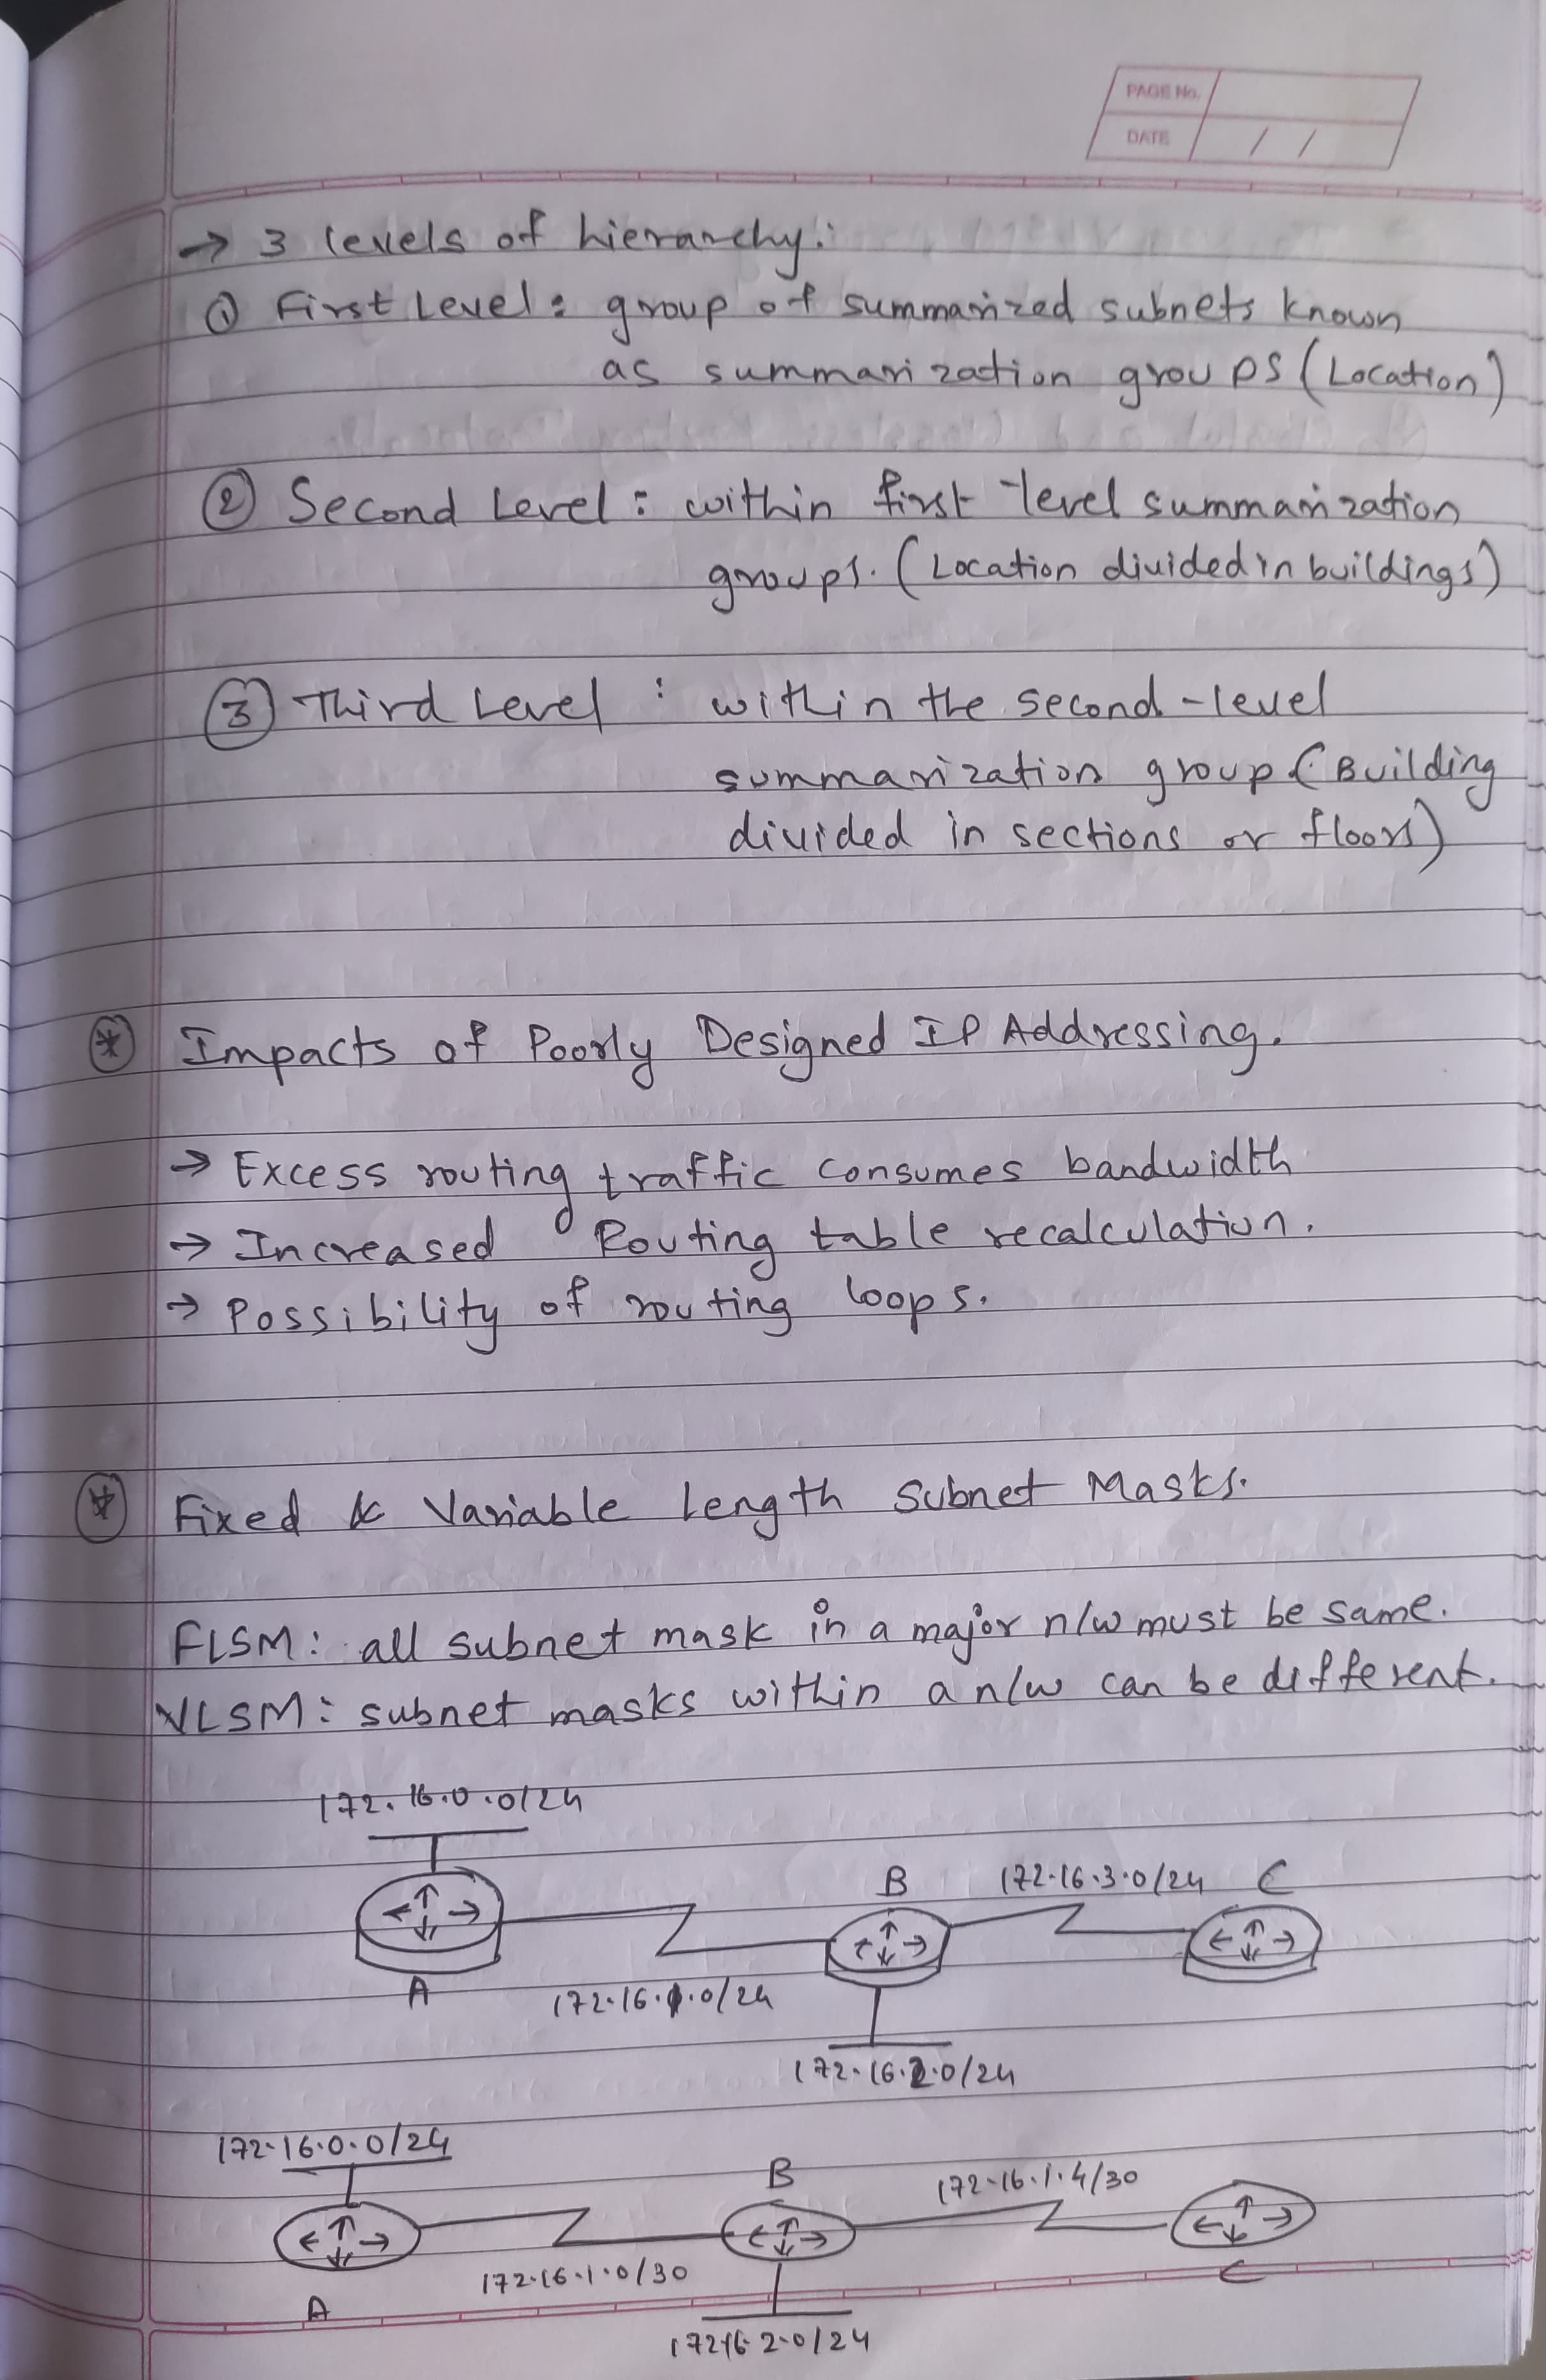 PAGE No.
DATE / /
→ 3 levels of hierarchy:
① First Level: group of summarized subnets known
as summarization groups (Location)
② Second Level: within first-level summarization
groups. (Location divided in buildings)
③ Third Level: within the second-level
summarization group (Building
divided in sections or floors)
* Impacts of Poorly Designed IP Addressing.
→ Excess routing traffic consumes bandwidth
→ Increased Routing table recalculation.
→ Possibility of routing loops.
* Fixed & Variable Length Subnet Masks.
FLSM: all subnet mask in a major n/w must be same.
VLSM: subnet masks within a n/w can be different.
172.16.0.0/24
B 172.16.3.0/24 C
A 172.16.1.0/24
172.16.2.0/24
172.16.0.0/24
B 172.16.1.4/30
172.16.1.0/30 C
A
172.16.2.0/24